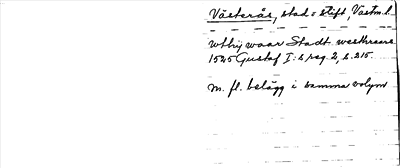 Västerås, stad o stift, Västm. l.
wthij waar Stadt westhraars
1525 Gustaf I:s reg. 2, s. 215.
m. fl. belägg i samma volym